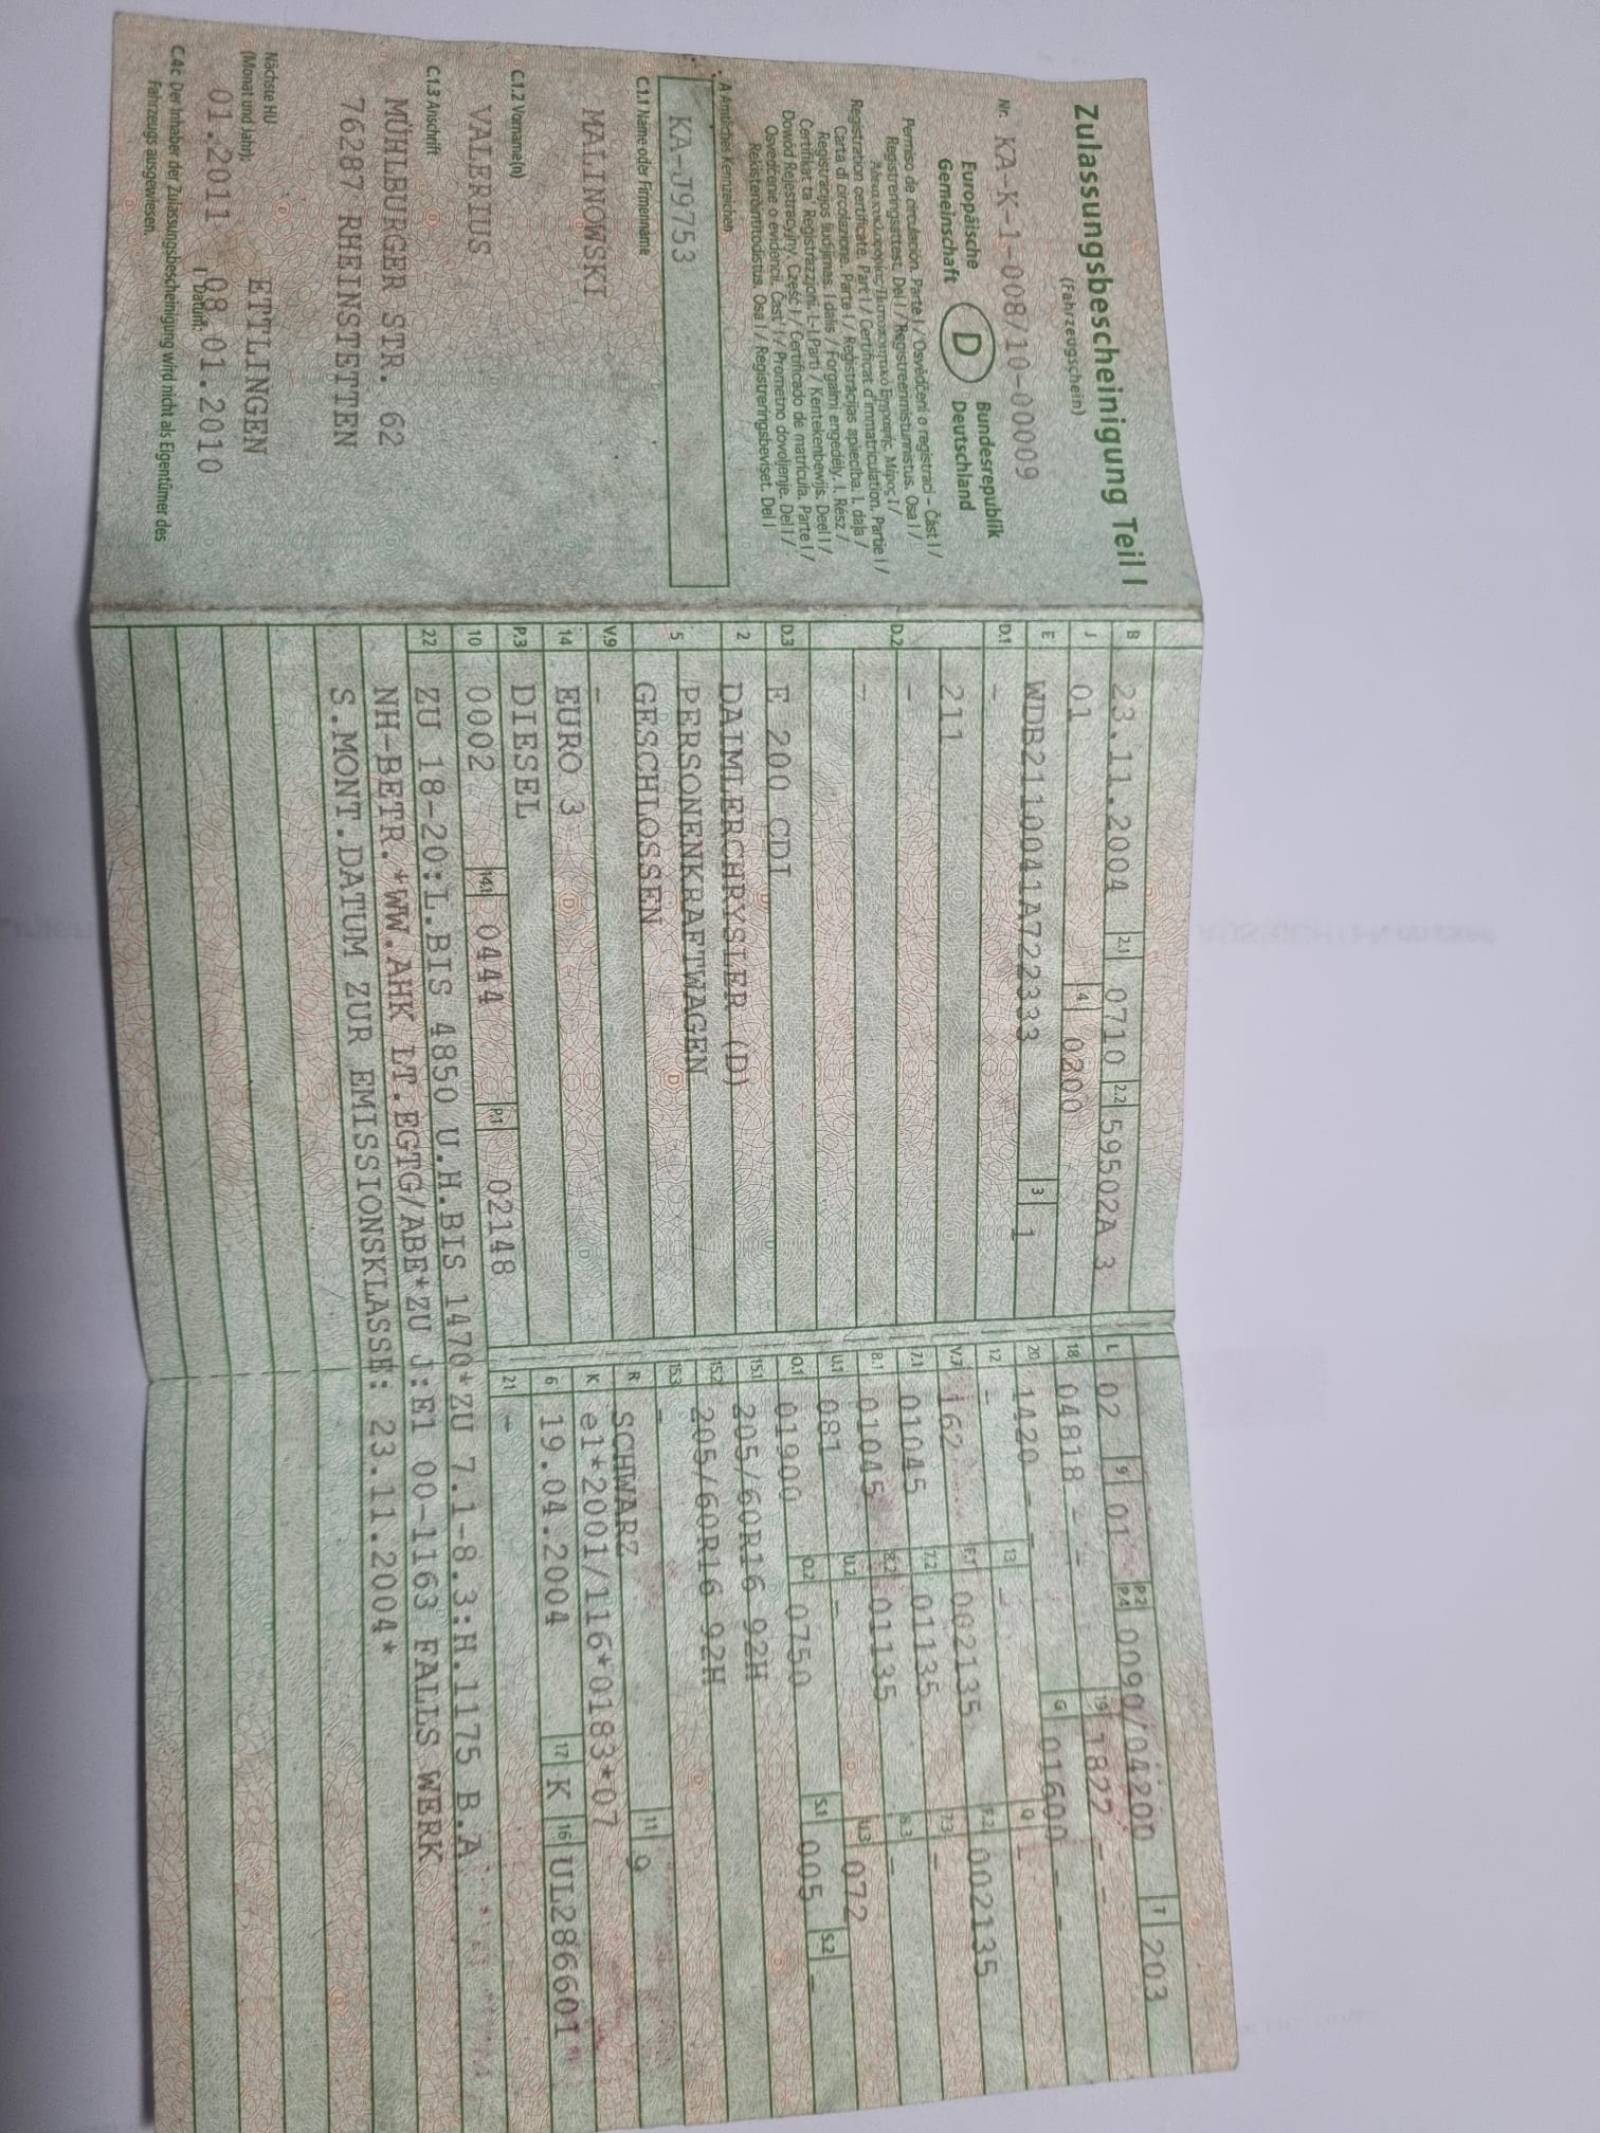 Zulassungsbescheinigung Teil I
(Fahrzeugschein)
Nr. KA-K-1-008/10-00009
Europäische Gemeinschaft
D
Bundesrepublik Deutschland
Permiso de circulación. Parte I / Osvědčení o registraci - Část I /
Registreringsattest. Del I / Registreerimistunnistus. Osa I /
Άδεια κυκλοφορίας/Πιστοποιητικό Εγγραφής. Μέρος I /
Registration certificate. Part I / Certificat d'immatriculation. Partie I /
Carta di circolazione. Parte I / Reģistrācijas apliecība. I. daļa /
Registracijos liudijimas. I dalis / Forgalmi engedély. I. Rész /
Ċertifikat ta' Reġistrazzjoni. L-I Parti / Kentekenbewijs. Deel I /
Dowód Rejestracyjny. Część I / Certificado de matrícula. Parte I /
Osvedčenie o evidencii. Časť I / Prometno dovoljenje. Del I /
Rekisteröintitodistus. Osa I / Registreringsbeviset. Del I
A Amtliches Kennzeichen
KA-J9753
C.1.1 Name oder Firmenname
MALINOWSKI
C.1.2 Vorname(n)
VALERIUS
C.1.3 Anschrift
MÜHLBURGER STR. 62
76287 RHEINSTETTEN
Nächste HU
(Monat und Jahr):
01.2011
ETTLINGEN
Datum:
08.01.2010
C.4c Der Inhaber der Zulassungsbescheinigung wird nicht als Eigentümer des
Fahrzeugs ausgewiesen.
B 23.11.2004 2.1 0710 2.2 59502A 3
J 01 4 0200
E WDB2110041A722333 3 1
D.1 -
211
D.2 -
-
D.3 E 200 CDI
2 DAIMLERCHRYSLER (D)
5 PERSONENKRAFTWAGEN
GESCHLOSSEN
V.9 -
14 EURO 3
P.3 DIESEL
10 0002 14.1 0444 P.1 02148
22 ZU 18-20:L.BIS 4850 U.H.BIS 1470*ZU 7.1-8.3:H.1175 B.A
NH-BETR.*WW.AHK LT.EGTG/ABE*ZU J:E1 00-1163 FALLS WERK
S.MONT.DATUM ZUR EMISSIONSKLASSE: 23.11.2004*
L 02 9 01 P.2 P.4 0090/04200 T 203
18 04818 - - 19 1822 - -
20 1420 - - G 01600 - -
12 - 13 - Q -
V.7 162 F.1 002135 F.2 002135
7.1 01045 7.2 01135 7.3 -
8.1 01045 8.2 01135 8.3 -
U.1 081 U.2 - U.3 072
O.1 01900 O.2 0750 S.1 005 S.2 -
15.1 205/60R16 92H
15.2 205/60R16 92H
15.3 -
R SCHWARZ 11 9
K e1*2001/116*0183*07
6 19.04.2004 17 K 16 UL286601
21 -